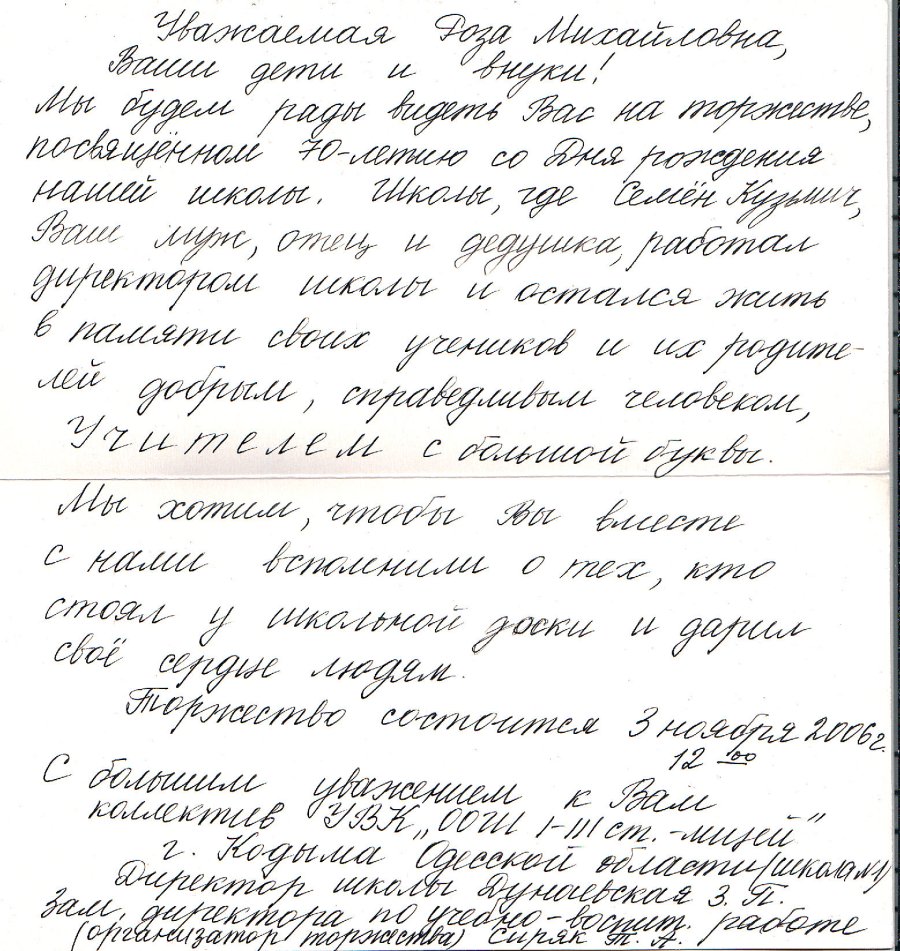 Уважаемая Роза Михайловна,
Ваши дети и внуки!
Мы будем рады видеть Вас на торжестве,
посвящённом 70-летию со Дня рождения
нашей школы. Школы, где Семён Кузьмич,
Ваш муж, отец и дедушка, работал
директором школы и остался жить
в памяти своих учеников и их родите-
лей добрым, справедливым человеком,
Учителем с большой буквы.
Мы хотим, чтобы Вы вместе
с нами вспомнили о тех, кто
стоял у школьной доски и дарил
своё сердце людям.
Торжество состоится 3 ноября 2006г.
12 00
С большим уважением к Вам
коллектив УВК „ООШ I-III ст.-лицей"
г. Кодыма Одесской области (школа №1)
Директор школы Дунаевская З. П.
Зам. директора по учебно-воспит. работе
(организатор торжества) Сиряк Т. А.